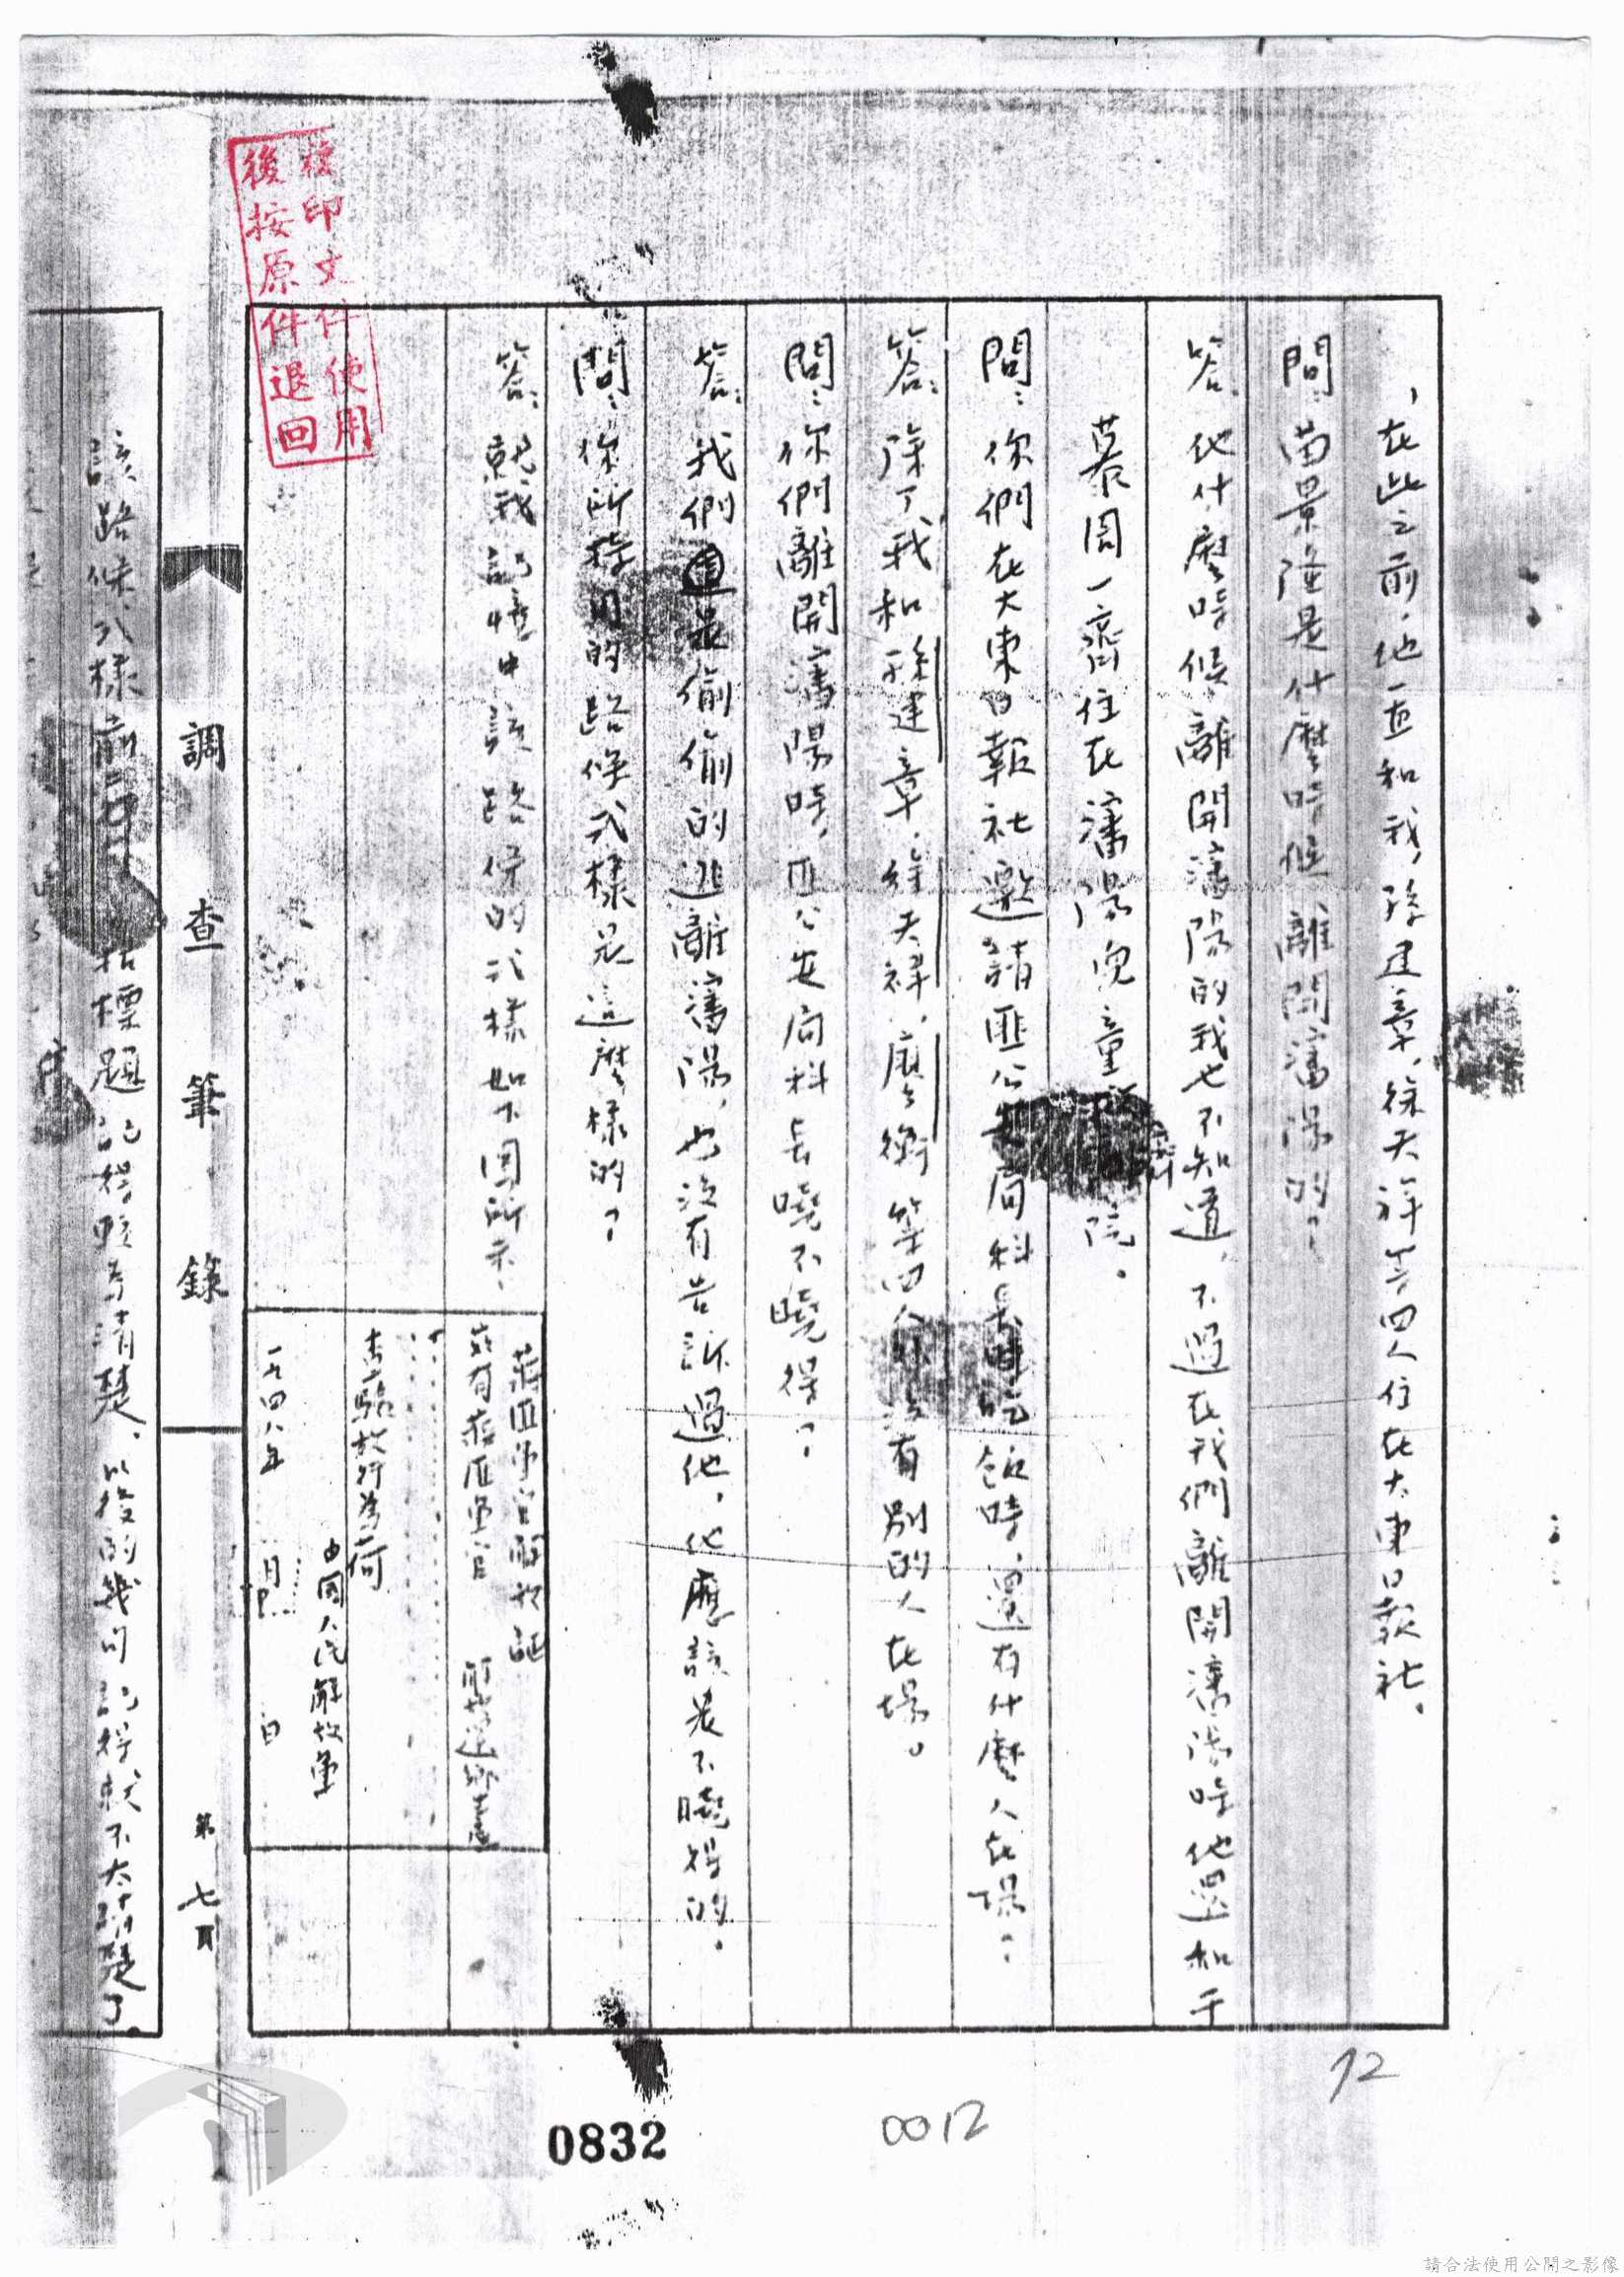 ，在此之前，他一直和我，孫建章，徐天祥等四人住在大東日報社。
問：苗景隆是什麼時候離開瀋陽的？
答：他什麼時候離開瀋陽的我也不知道，不過在我們離開瀋陽時他還和于
慕周一齊住在瀋陽兒童 院。
問：你們在大東日報社邀請匪公安局科長 吃飯時，還有什麼人在場？
答：除了我和孫建章，徐天祥，廖衡等四人 沒有別的人在場。
問：你們離開瀋陽時，匪公安局科長曉不曉得？
答：我們 是偷偷的逃離瀋陽，也沒有告訴過他，他應該是不曉得的。
問：你所持用的路條式樣是這麼樣的？
答：就我記憶中該路條的式樣如下圖所示：
蔣匪軍官解放証
茲有蔣匪軍官 解放還鄉
查驗放行為荷
中國人民解放軍
一九四八年 月 日
調查筆錄
第七頁
該路條式樣前 括標題記得較為清楚，以後的幾句記得就不太清楚了。
複印文件使用
後按原件退回
0832
0012
12
請合法使用公開之影像